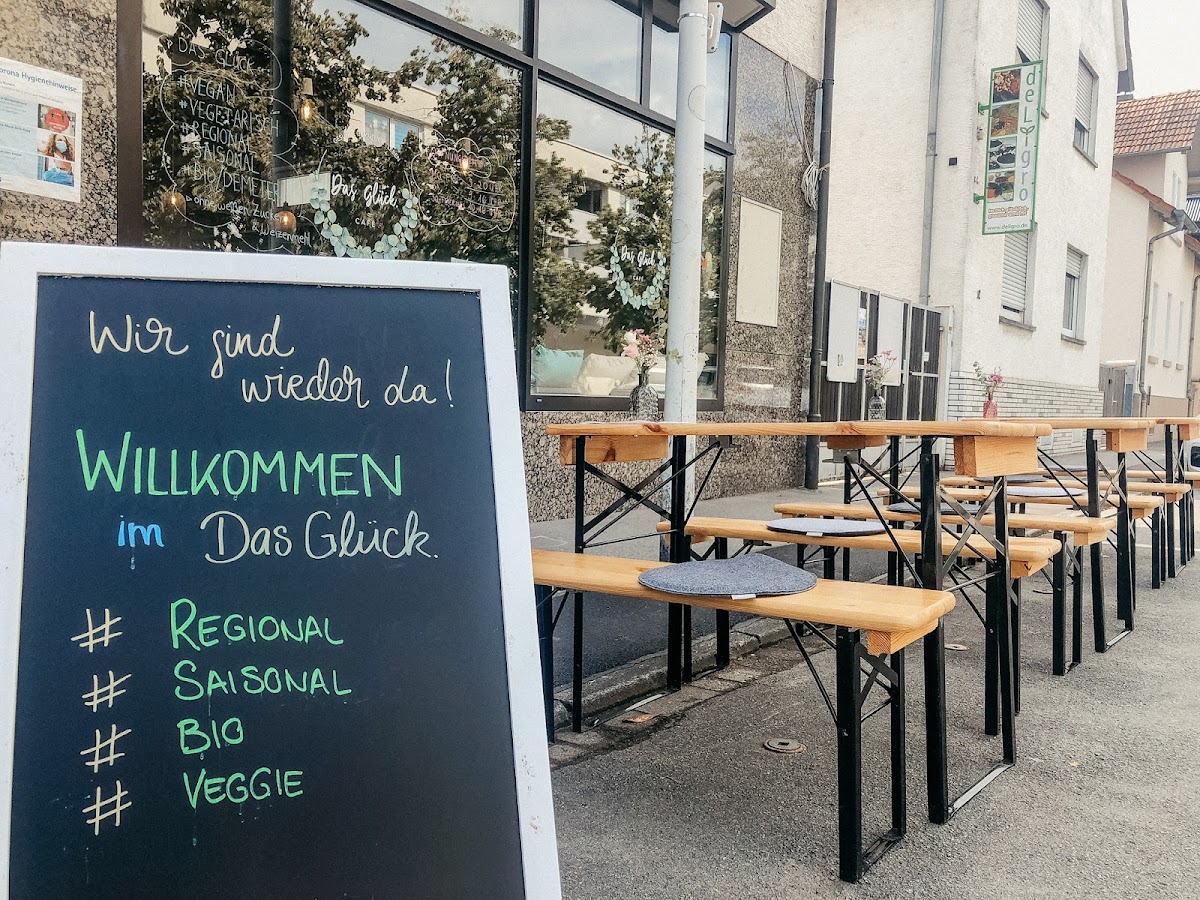 Corona Hygienehinweise
DAS GLÜCK
#VEGAN
#VEGETARISCH
#REGIONAL
#SAISONAL
#BIO/DEMETER
ohne weißen Zucker
& Weizenmehl
Das Glück
CAFÉ
Das Glück
CAFÉ
deligro
www.deligro.de
Wir sind
wieder da!
WILLKOMMEN
im Das Glück.
# REGIONAL
# SAISONAL
# BIO
# VEGGIE